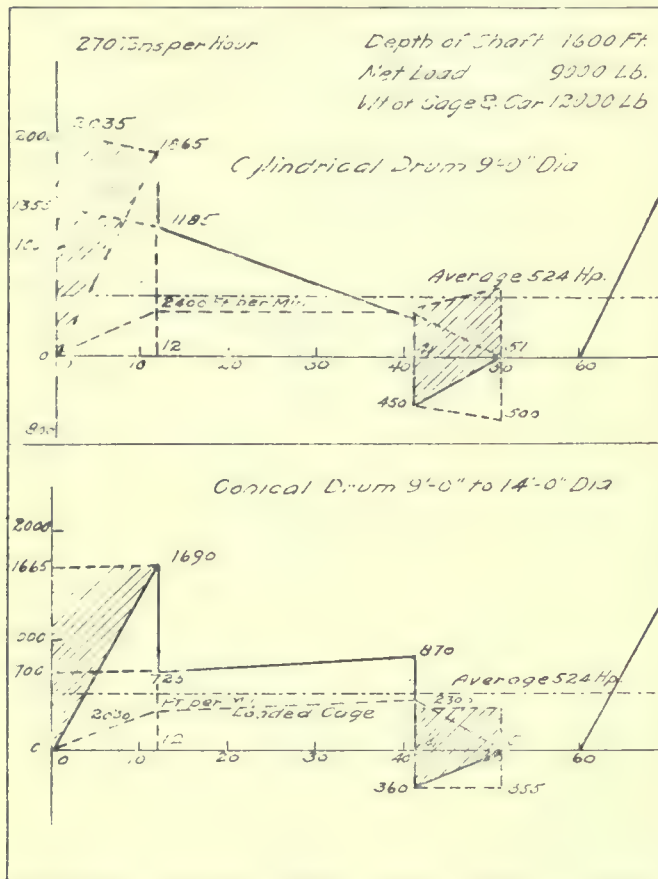 270 Tons per Hour
Depth of Shaft 1600 Ft.
Net Load 9000 Lb.
Wt of Cage & Car 12000 Lb
2000
2035
1865
Cylindrical Drum 9'-0" Dia
1355
1185
Average 524 Hp.
2400 Ft per Min.
0
0
10
12
20
30
40
51
60
450
500
Conical Drum 9'-0" to 14'-0" Dia
2000
1665
1690
700
725
870
Average 524 Hp.
2030
Ft per
Loaded Cage
230
0
10
12
20
30
40
60
360
355